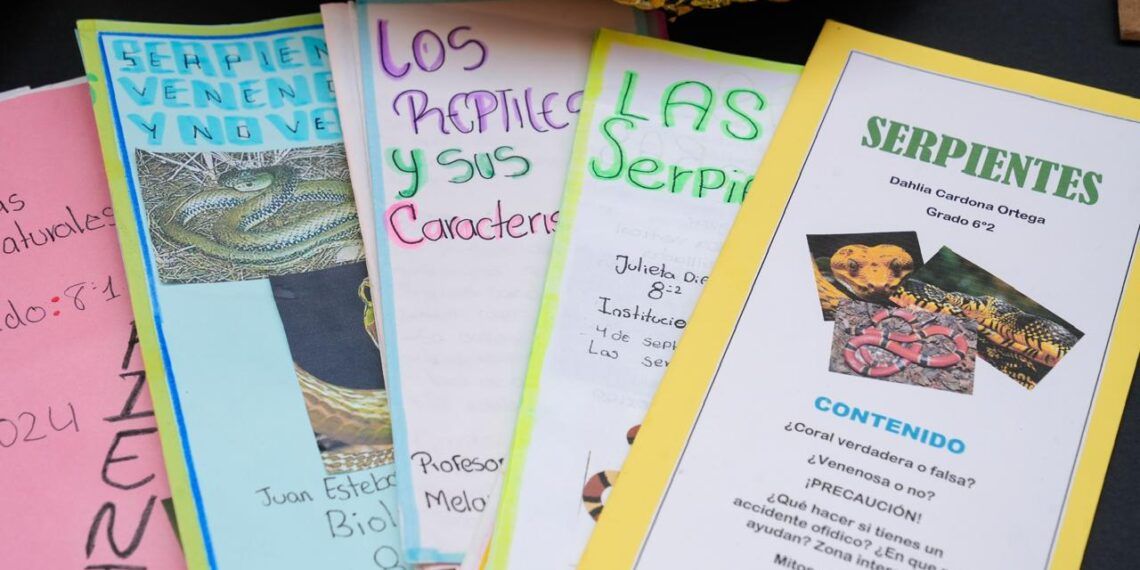 Naturales
8:1
2024
SERPIEN
VENENO
Y NO VE
Juan Esteba
Biol
LOS
REPTILES
y sus
Caracteris
Profesor
LAS
Serpie
Julieta Die
8:2
Institucio
4 de sept
Las ser
SERPIENTES
Dahlia Cardona Ortega
Grado 6°2
CONTENIDO
¿Coral verdadera o falsa?
¿Venenosa o no?
¡PRECAUCIÓN!
¿Qué hacer si tienes un
accidente ofídico? ¿En que
ayudan? Zona inter
Mitos